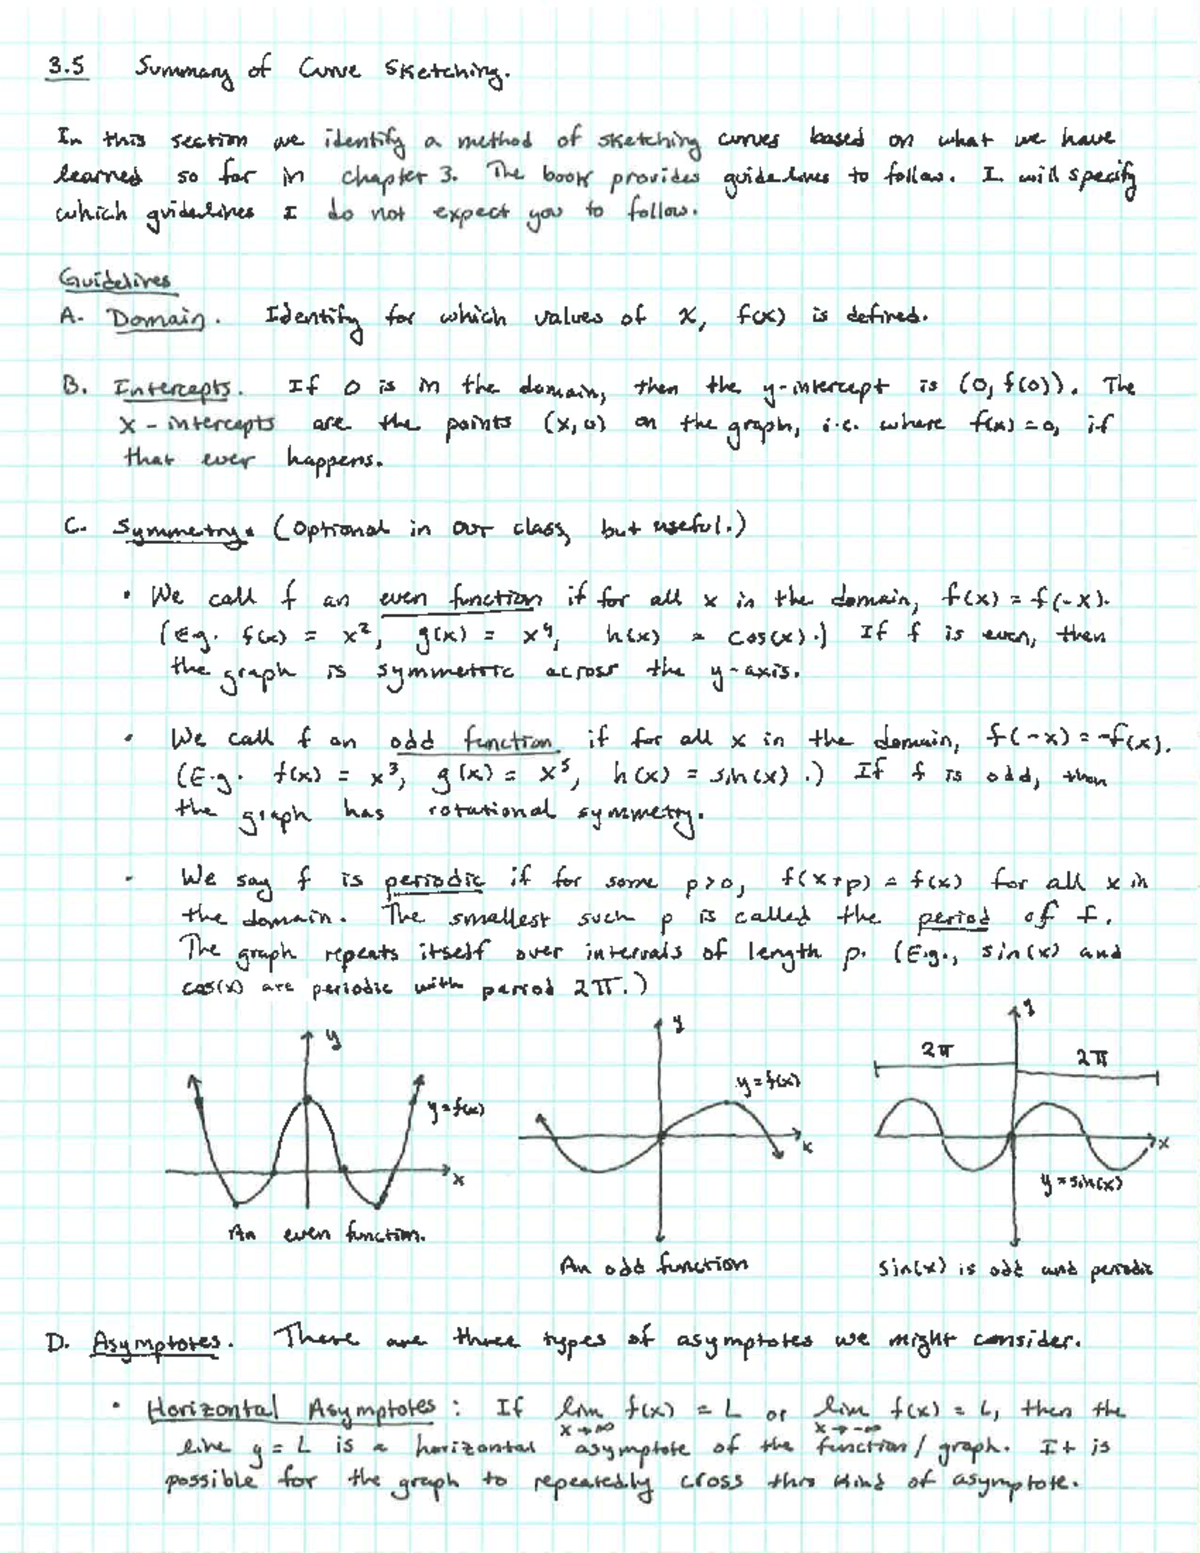 3.5 Summary of Curve Sketching.
In this section we identify a method of sketching curves based on what we have
learned so far in chapter 3. The book provides guidelines to follow. I will specify
which guidelines I do not expect you to follow.
Guidelines
A. Domain. Identify for which values of x, f(x) is defined.
B. Intercepts. If 0 is in the domain, then the y-intercept is (0, f(0)). The
x-intercepts are the points (x,0) on the graph, i.e. where f(x)=0, if
that ever happens.
C. Symmetry. (Optional in our class, but useful.)
• We call f an even function if for all x in the domain, f(x) = f(-x).
(E.g. f(x) = x², g(x) = x⁴, h(x) = cos(x).) If f is even, then
the graph is symmetric across the y-axis.
• We call f an odd function if for all x in the domain, f(-x) = -f(x).
(E.g. f(x) = x³, g(x) = x⁵, h(x) = sin(x).) If f is odd, then
the graph has rotational symmetry.
• We say f is periodic if for some p>0, f(x+p) = f(x) for all x in
the domain. The smallest such p is called the period of f.
The graph repeats itself over intervals of length p. (E.g., sin(x) and
cos(x) are periodic with period 2π.)
y
y=f(x)
x
An even function.
y
y=f(x)
x
An odd function
y
2π 2π
x
y=sin(x)
sin(x) is odd and periodic
D. Asymptotes. There are three types of asymptotes we might consider.
• Horizontal Asymptotes: If lim f(x) = L or lim f(x) = L, then the
x→∞ x→-∞
line y = L is a horizontal asymptote of the function/graph. It is
possible for the graph to repeatedly cross this kind of asymptote.